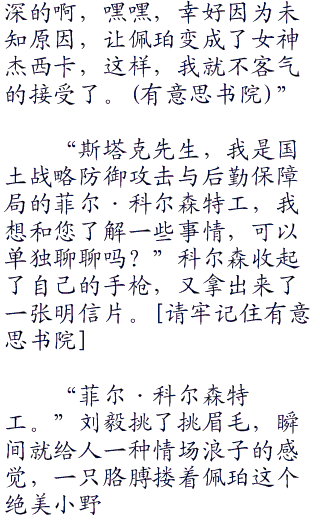 深的啊，嘿嘿，幸好因为未
知原因，让佩珀变成了女神
杰西卡，这样，我就不客气
的接受了。(有意思书院)”
“斯塔克先生，我是国
土战略防御攻击与后勤保障
局的菲尔·科尔森特工，我
想和您了解一些事情，可以
单独聊聊吗？”科尔森收起
了自己的手枪，又拿出来了
一张明信片。[请牢记住有意
思书院]
“菲尔·科尔森特
工。”刘毅挑了挑眉毛，瞬
间就给人一种情场浪子的感
觉，一只胳膊搂着佩珀这个
绝美小野